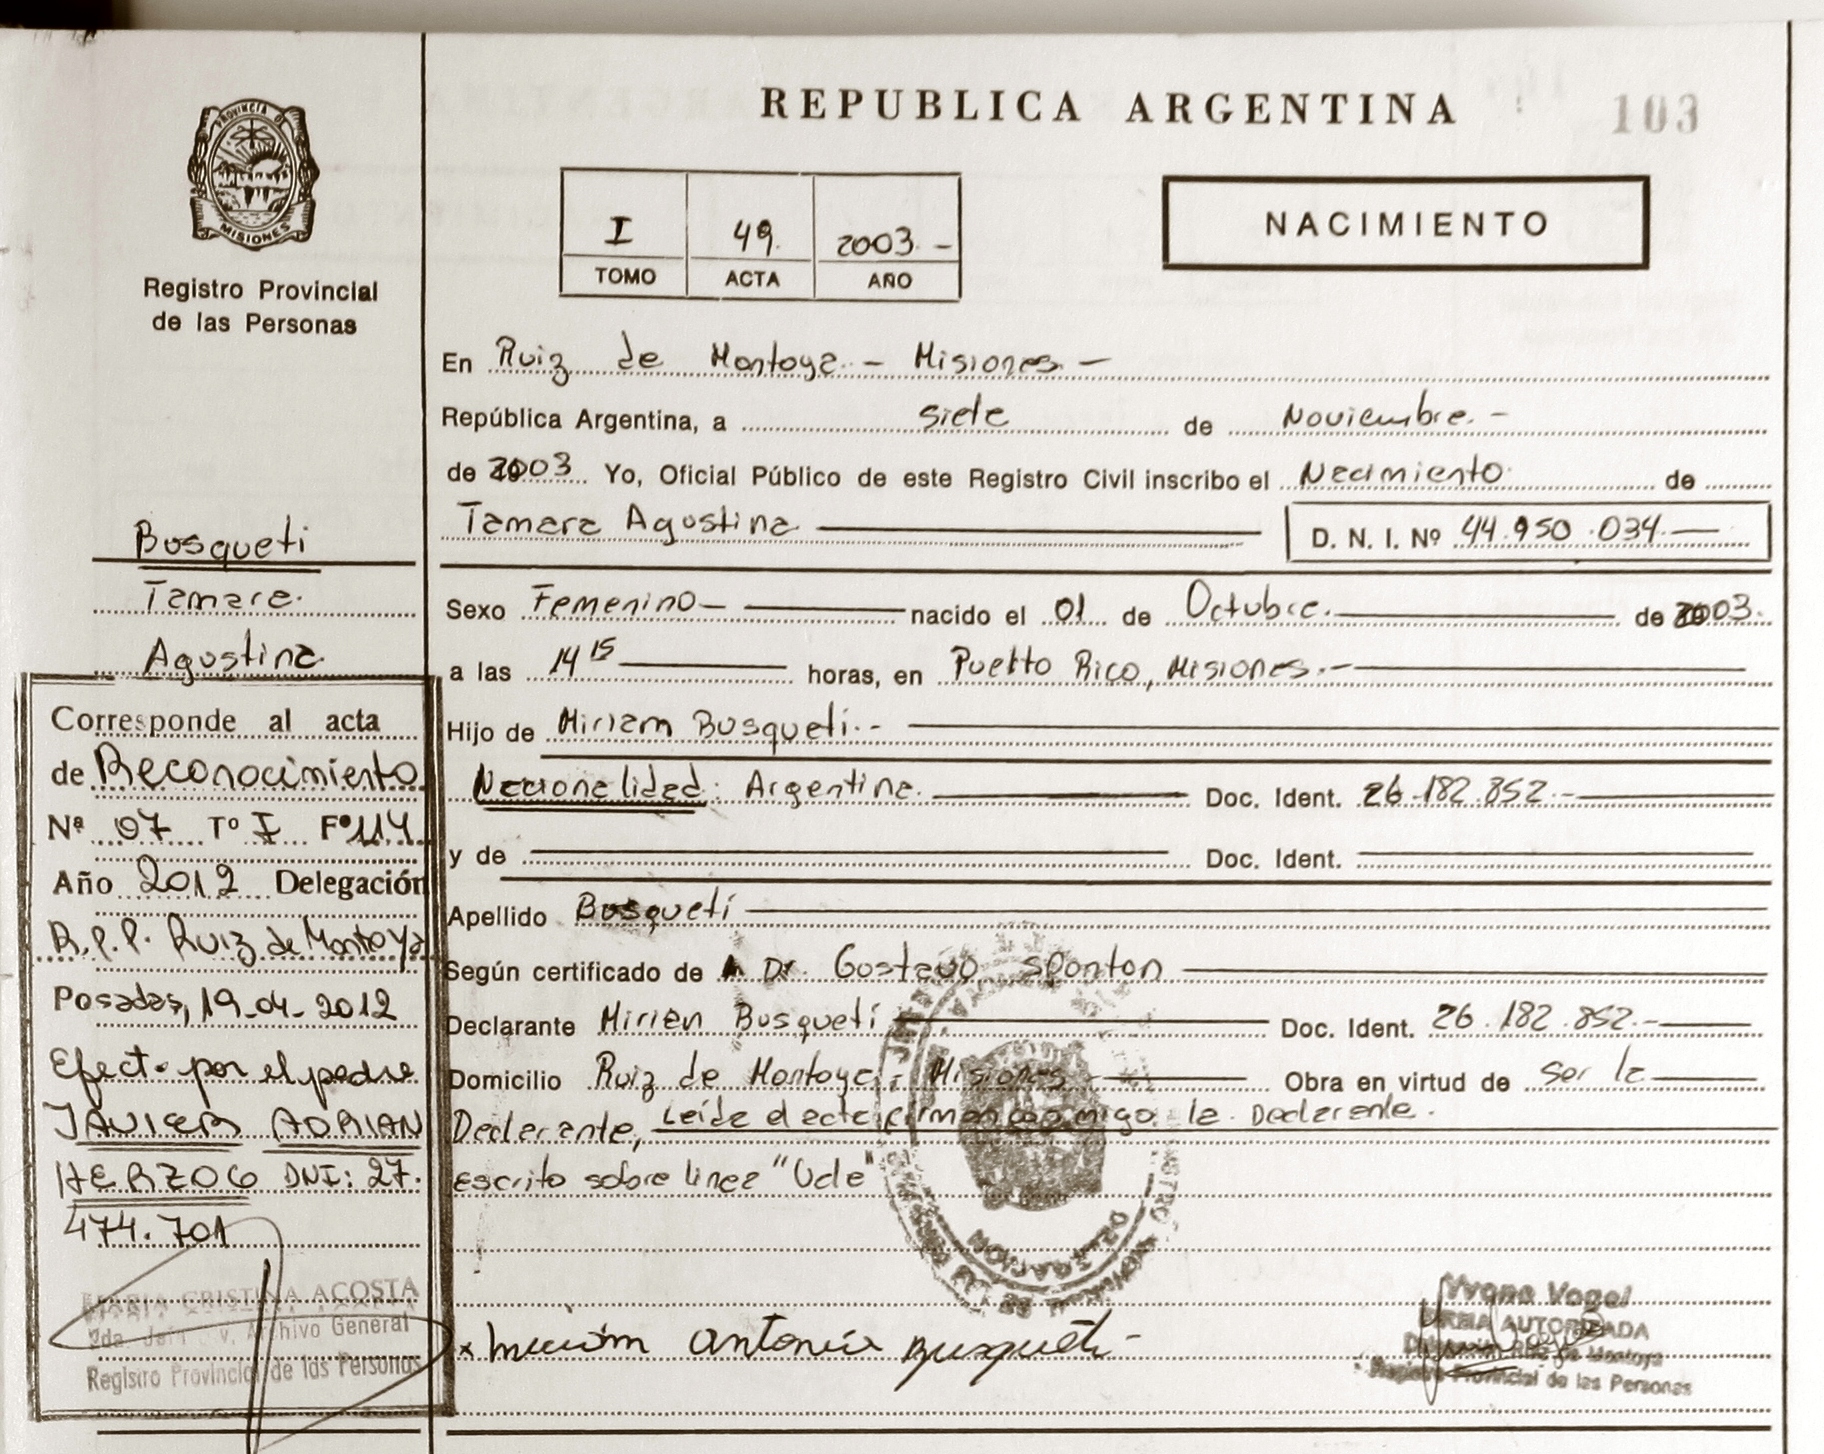 REPUBLICA ARGENTINA
103
PROVINCIA DE
MISIONES
Registro Provincial
de las Personas
I 49. 2003.-
TOMO ACTA AÑO
NACIMIENTO
En Ruiz de Montoya.- Misiones.-
República Argentina, a siete de Noviembre.-
de 2003. Yo, Oficial Público de este Registro Civil inscribo el Nacimiento de
Tamara Agostina
D. N. I. Nº 44.950.034.-
Sexo Femenino- nacido el 01 de Octubre. de 2003.
a las 14 15 horas, en Puerto Rico, Misiones.-
Hijo de Miriam Busqueti.-
Nacionalidad: Argentina. Doc. Ident. 26.182.852.-
y de Doc. Ident.
Apellido Busqueti
Según certificado de Dr. Gustavo Sponton
Declarante Mirian Busqueti Doc. Ident. 26.182.852.-
Domicilio Ruiz de Montoya, Misiones Obra en virtud de ser la
Declarante, Leída el acta firman conmigo la Declarante.
escrito sobre linea
Busqueti
Tamara.
Agostina.
Corresponde al acta
de Reconocimiento
Nª 07 Tº I Fº 114
Año 2012 Delegación
R.P.P. Ruiz de Montoya
Posadas, 19-04-2012
Efect. por el padre
JAVIER ADRIAN
HERZOG DNI: 27.
474.701
MARIA CRISTINA ACOSTA
Archivo General
Registro Provincial de las Personas
x Miriam Antonia Busqueti-
Yvone Vogel
FIRMA AUTORIZADA
Delegación Ruiz de Montoya
Registro Provincial de las Personas
DELEGACION